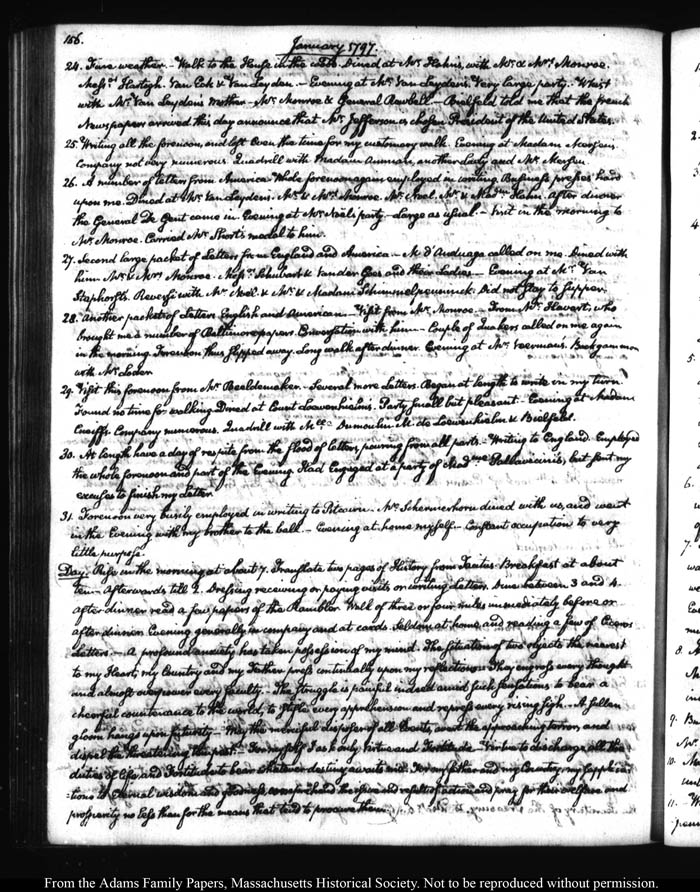 156.
January 1797.
24. Fine weather. — Walk to the House in the wood. Dined at Mr. Hahn's, with Mr. & Mrs. Monroe.
Messrs. Hartogh. Van Eck & Van Leyden. — Evening at Mr. Van Leyden's. Very large party. Whist
with Mr. Van Leyden's mother — Mr. Monroe & General — Bielfeld told me that the french
Newspapers arrived this day announce that Mr. Jefferson is chosen President of the United States.
25. Writing all the forenoon, and left even the time for my customary walk. Evening at Madam
Company not very numerous. Quadrill with Madam another Lady and Mr.
26. A number of letters from America. Whole forenoon again employed in writing. Business presses hard
upon me. Dined at Mr. Van Leyden's. Mr. & Mrs. Monroe. Mr. Noel, Mr. & Hahn. After dinner
the General De Gent came in. Evening at Mr. Noel's party. — Large as usual. — Visit in the morning to
Mr. Monroe. Carried Mr. Short's medal to him.
27. Second large packet of Letters from England and America. — M. d'Anduaga called on me. Dined with
him. Mr. & Mrs. Monroe. Messrs. Schubart & Vander Goes and their Ladies — Evening at Mr. Van
Staphorst's. Reversi with Mr. Noel. & Mr. & Madam Schimmelpenninck. Did not stay to supper.
28. Another packet of Letters English and American. — Visit from Mr. Monroe. — From Mr. who
brought me a number of Baltimore papers. Conversation with him — Couple of Quakers called on me again
in the morning. Forenoon thus slipped away. Long walk after dinner. Evening at Mr. Veerman's.
with Mr.
29. Visit this forenoon from Mr. Beeldemaker. — Several more Letters. Began at length to write in my turn.
Found no time for walking. Dined at Count Löwenhielm's. Party small but pleasant. — Evening at Madam
Company numerous. Quadrill with Dumoulin M. de Loewenhielm & Bielfeld.
30. At length have a day of respite from the flood of letters, pouring from all parts. — Writing to England. Employed
the whole forenoon and part of the Evening. Had engaged at a party of Madme. Pallavicini's, but sent my
excuses to finish my letter.
31. Forenoon very busily employed in writing to Pitcairn. Mr. Schermerhorn dined with us, and went
in the Evening with my brother to the ball. — Evening at home myself. — Constant occupation to very
little purpose.
Day. Rise in the morning at about 7. Translate two pages of History from Tacitus. Breakfast at about
ten. — Afterwards till 2. Dressing receiving or paying visits or writing letters. Dine between 3 and 4.
after dinner read a few papers of the Rambler. Walk of three or four miles immediately before or
after dinner. Evening generally in company and at cards. Seldom at home, and reading a few of Cicero's
Letters. — A profound anxiety has taken possession of my mind. The situation of two objects the nearest
to my Heart, my Country and my Father press continually upon my reflections. They engross every thought
and almost overpower every faculty. — The struggle is painful indeed amid such sensations to bear a
chearful countenance to the world, to stifle every apprehension and repress every rising sigh. — A sullen
gloom hangs upon futurity. — May the merciful disposer of all Events, avert the approaching terrors, and
dispel the threatening tempest. — For myself I ask only Virtue and Fortitude. — Virtue to discharge all the
duties of life, and Fortitude to bear whatever destiny awaits me. For my father and my Country, my supplica-
tions to Eternal wisdom and goodness and pray for their welfare and
prosperity no less than for the means that tend to procure them.
From the Adams Family Papers, Massachusetts Historical Society. Not to be reproduced without permission.